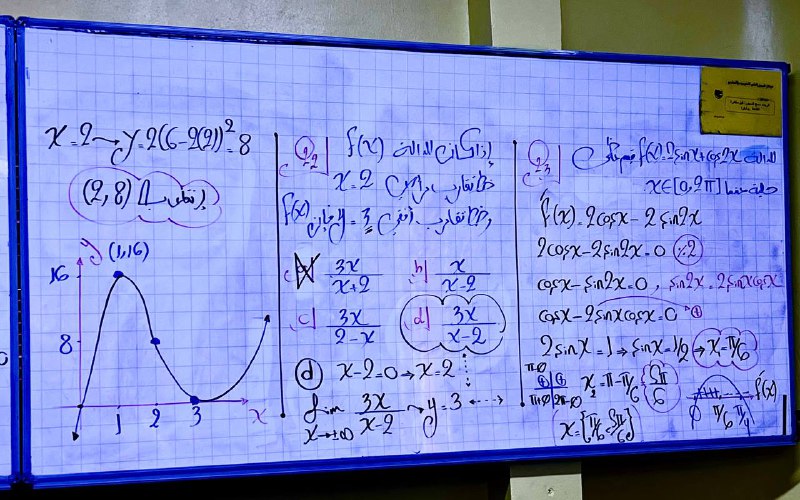 x=2 → y=2(6-2(2))²=8
(2,8)
y
(1,16)
16
8
1
2
3
x
Q-2
إذا كان الدالة f(x)
خط تقارب رأسي x=2
وخط تقارب أفقي y=3 فإن f(x)
a 3x/(x+2)
b) x/(x-2)
c) 3x/(2-x)
d) 3x/(x-2)
d x-2=0 → x=2
lim x→±∞ 3x/(x-2) → y=3
Q-3
الدالة f(x)=2sinx+cos2x
x∈[0,2π]
f'(x)=2cosx-2sin2x
2cosx-2sin2x=0 (÷2)
cosx-sin2x=0, sin2x=2sinxcosx
cosx-2sinxcosx=0
2sinx=1 → sinx=1/2 → x=π/6
x=π-π/6=5π/6
f'(x)
0 π/6
x=[π/6,5π/6]